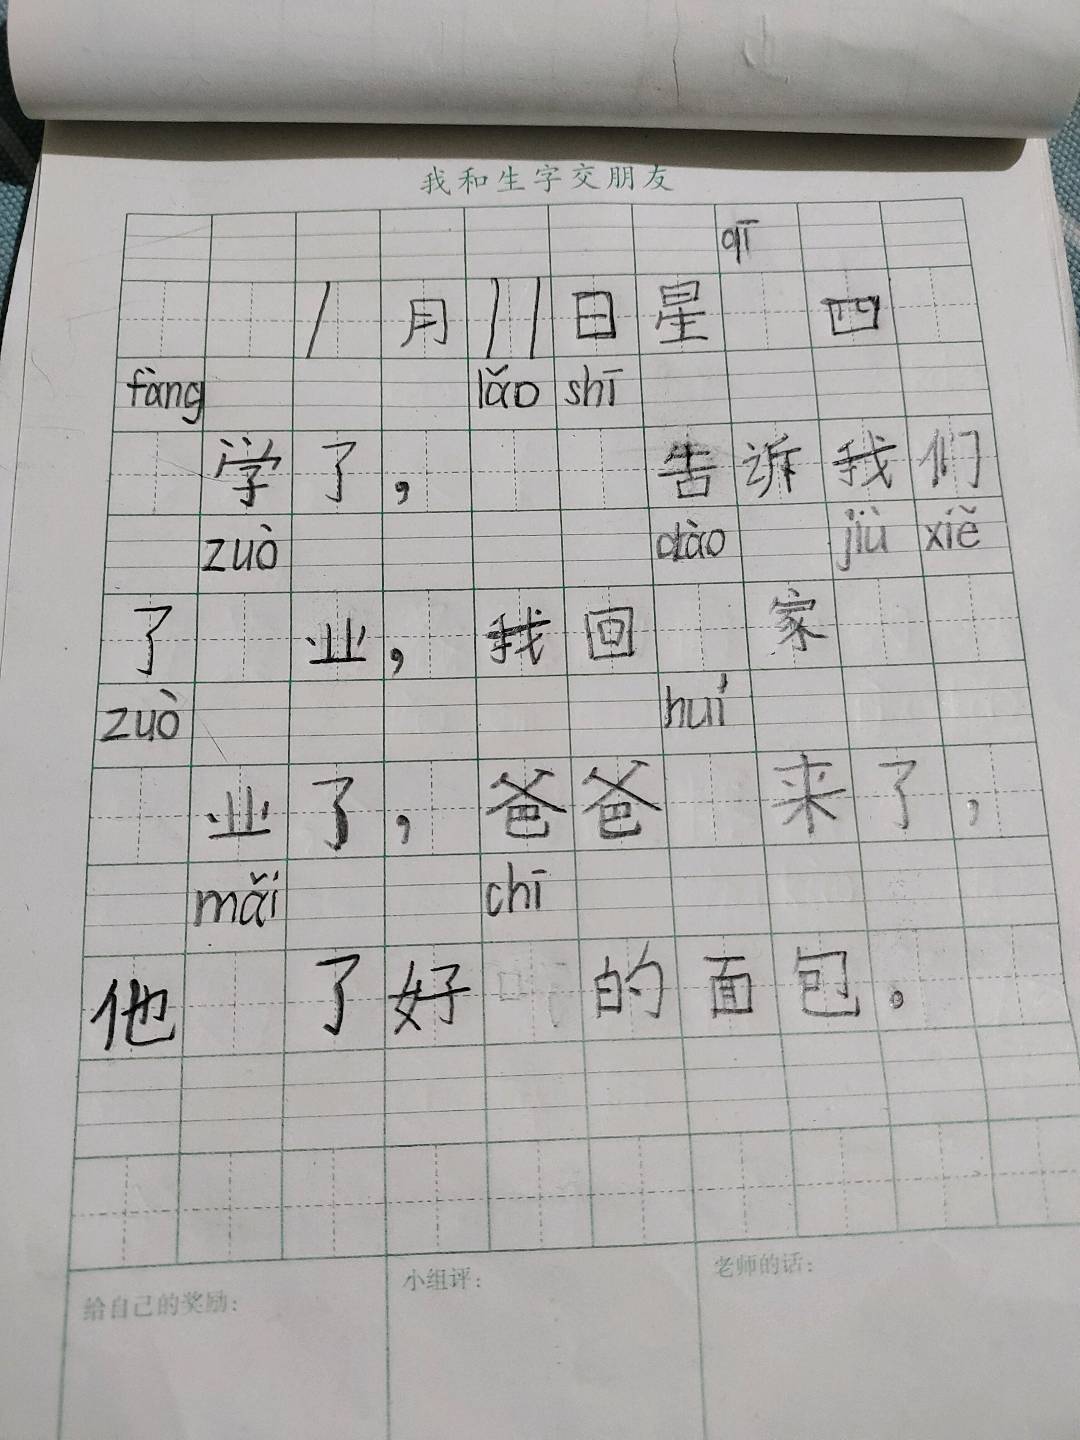 我和生字交朋友
qī
1月11日星 四
fàng lǎo shī
学了， 告诉我们
zuò dào jiù xiě
了 业，我回 家
zuò huí
业了，爸爸 来了，
mǎi chī
他 了好 的面包。
给自己的奖励：
小组评：
老师的话：